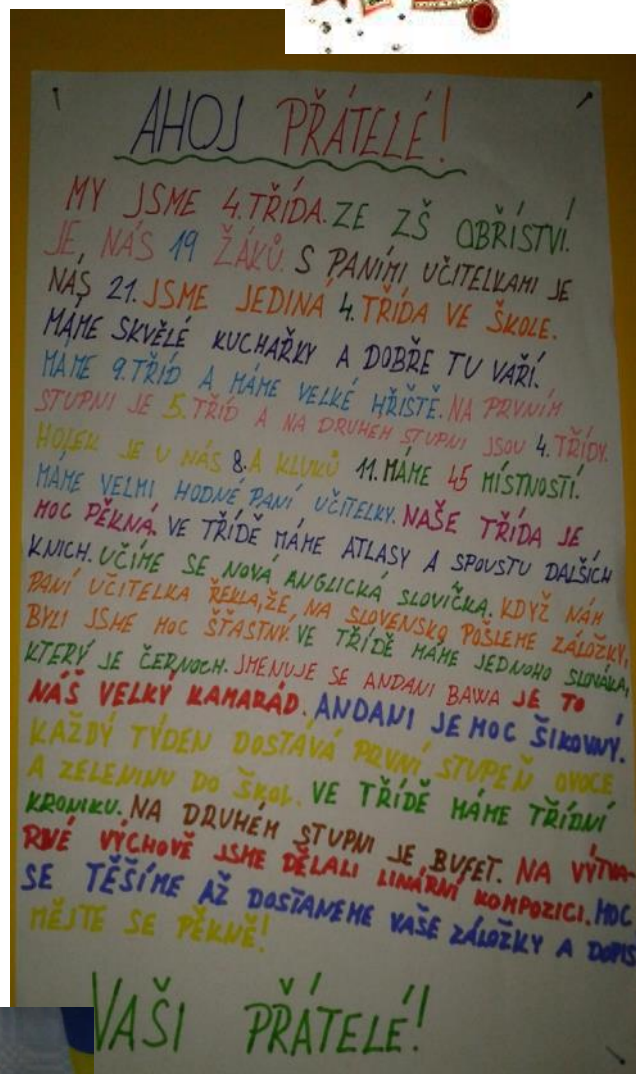 AHOJ PŘÁTELÉ!
MY JSME 4.TŘÍDA. ZE ZŠ OBŘÍSTVÍ.
JE NÁS 19 ŽÁKŮ. S PANÍMI UČITELKAMI JE
NÁS 21. JSME JEDINÁ 4. TŘÍDA VE ŠKOLE.
MÁME SKVĚLÉ KUCHAŘKY A DOBŘE TU VAŘÍ.
MÁME 9.TŘÍD A MÁME VELKÉ HŘIŠTĚ. NA PRVNÍM
STUPNI JE 5. TŘÍD A NA DRUHÉM STUPNI JSOU 4. TŘÍDY.
HOLEK JE U NÁS 8. A KLUKŮ 11. MÁME 45 MÍSTNOSTÍ.
MÁME VELMI HODNÉ PANÍ UČITELKY. NAŠE TŘÍDA JE
MOC PĚKNÁ. VE TŘÍDĚ MÁME ATLASY A SPOUSTU DALŠÍCH
KNICH. UČÍME SE NOVÁ ANGLICKÁ SLOVÍČKA. KDYŽ NÁM
PANÍ UČITELKA ŘEKLA, ŽE NA SLOVENSKO POŠLEME ZÁLOŽKY,
BYLI JSME MOC ŠŤASTNÝ. VE TŘÍDĚ MÁME JEDNOHO SLOVÁKA,
KTERÝ JE ČERNOCH. JMENUJE SE ANDANI BAWA JE TO
NÁŠ VELKÝ KAMARÁD. ANDANI JE MOC ŠIKOVNÝ.
KAŽDÝ TÝDEN DOSTÁVÁ PRVNÍ STUPEŇ OVOCE
A ZELENINU DO ŠKOL. VE TŘÍDĚ MÁME TŘÍDNÍ
KRONIKU. NA DRUHÉM STUPNI JE BUFET. NA VÝTVA-
RNÉ VÝCHOVĚ JSME DĚLALI LINÁRNÍ KOMPOZICI. MOC
SE TĚŠÍME AŽ DOSTANEME VAŠE ZÁLOŽKY A DOPIS
MĚJTE SE PĚKNĚ!
VAŠI PŘÁTELÉ!